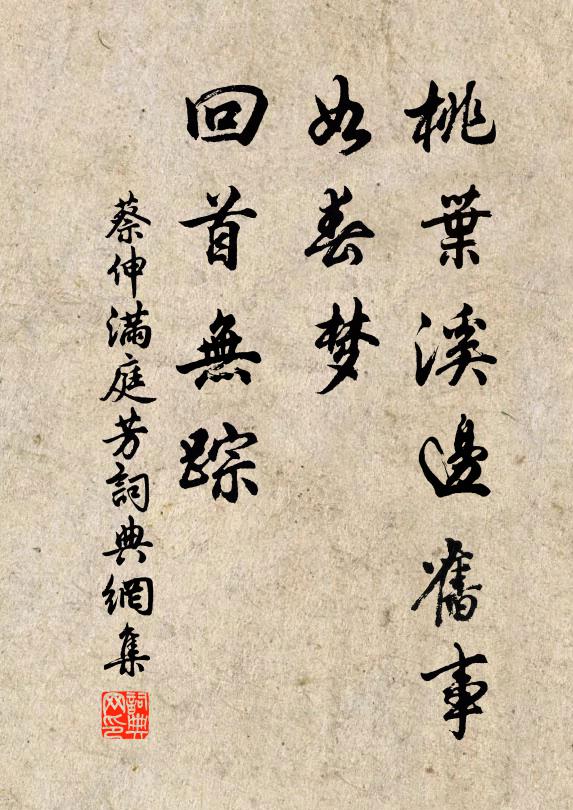 桃葉溪邊舊事
如春夢
回首無踪
蔡伸滿庭芳詞典網集
詞典网印